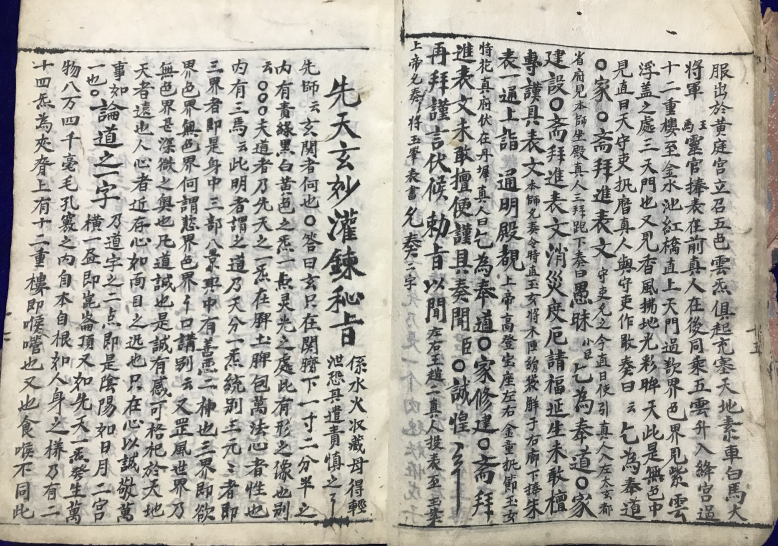 服出於黄庭宫立召五色雲炁俱起充塞天地素車白馬大
將軍王馬靈官捧表在前真人在後同乘五雲升入絳宫過
十二重樓至金水池紅橋直上天門過歘界色界見紫雲
浮盖之處三天門也又見香風拂地光彩眸天此是無色中
見直日天守吏扤磨真人與守吏作歌奏曰云乞為奉道
〇家〇斋拜進表文守吏允之今直日使引真人左太玄都
省府見本師坐殿真人三拜跪下奏曰愚昧小臣乞為奉道〇家
建設〇斋拜進表文消災度厄請福延生未敢擅
專謹具表文本師允奏令時直玉玄將木匣
表一通上詣 通明殿觀上帝高登宝座左右金童扤節玉女
特花真府伏在丹墀真人曰乞為奉道〇家修建〇斋拜
進表文未敢擅便謹具奏聞臣〇誠惶
再拜謹言伏候勅旨以聞左右王趙二真人投表至玉案
上帝允奏將玉筆表書允奏二字
先天玄妙灌錬秘旨係水火収藏母得輕
泄恐再遣責慎之
先師云玄関者何也〇答曰玄只在関臍下一寸二分半之
内有青緑黑白黄色之炁一点灵光之處此有形之像也别
云〇〇〇夫道者乃先天之一炁在脾土脾包萬法心者性也
内有三焉云此明者謂之道乃天分一炁統别三元三者即
三界者即是身中三部八景與中有善悪二神也三界即欲
界色界無色界何謂慾界色界口講别云又罡風世界乃
無色界是深微之奥也凡道誠也是誠有感可格祀於天地
天者遠也人心者近存心如面目之迅也只在心以誠敬萬
事如一也〇論道之一字乃道字之二点即是陰陽如日月二宫
横一盔即崑崙頂又如先天一炁發生萬
物八万四千毫毛孔竅之内自本自根如人身之樣乃有二
十四炁為夾脊上有十二重樓即喉嚨也又也食喉不同此